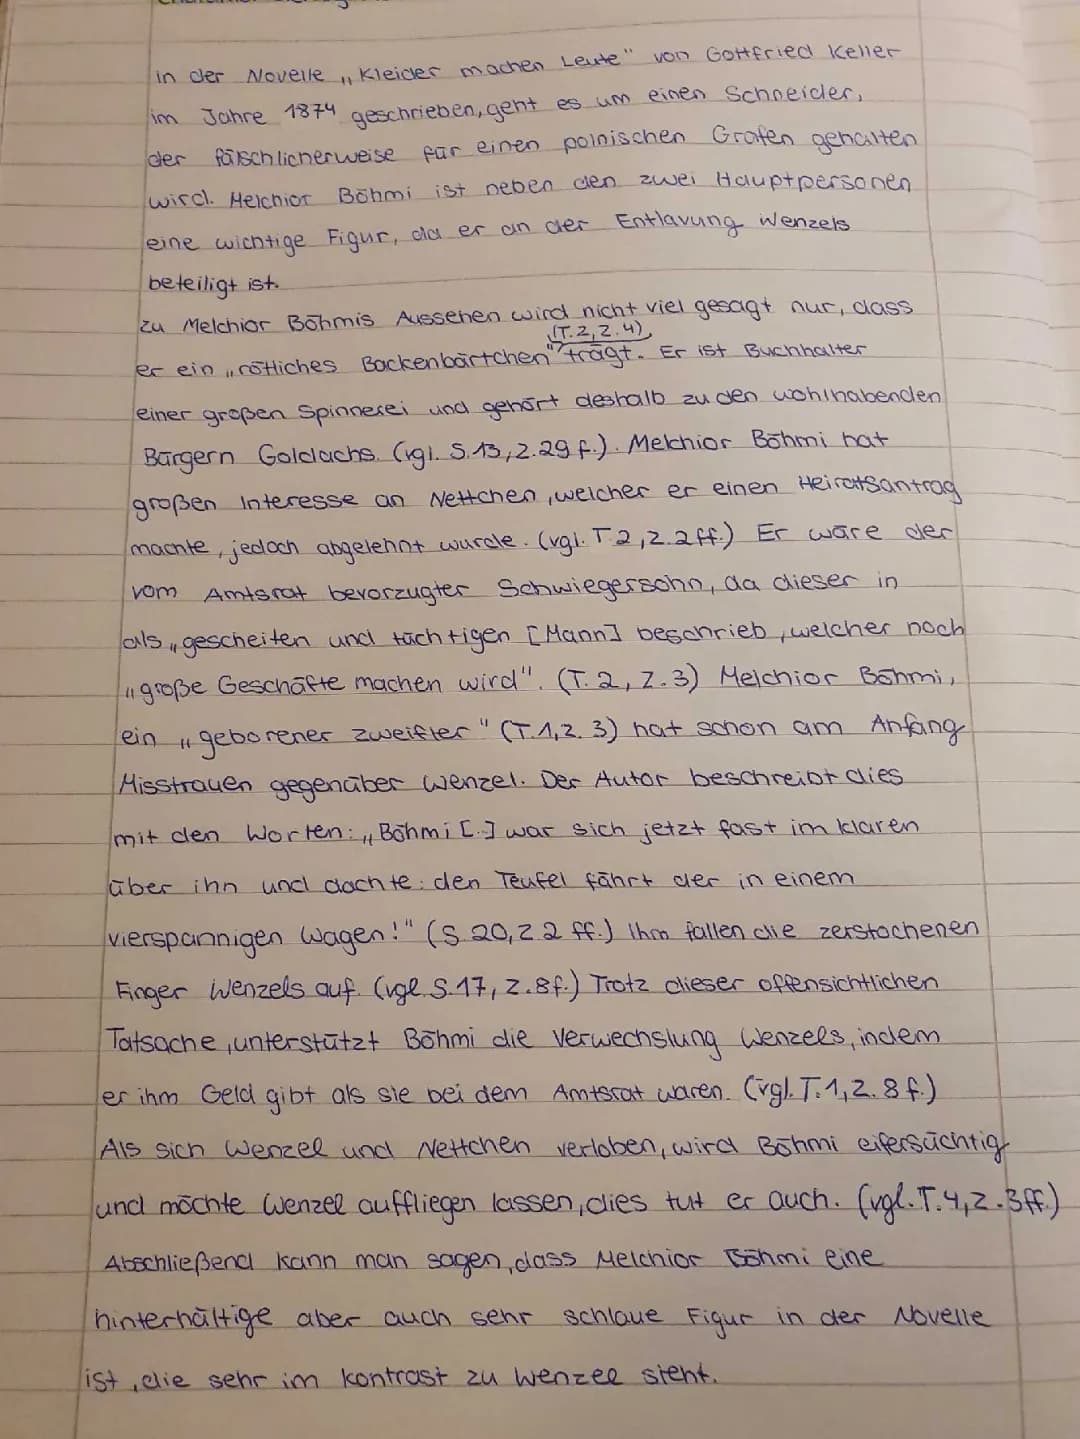 in der Novelle „Kleider machen Leute" von Gottfried Keller
im Jahre 1874 geschrieben, geht es um einen Schneider,
der fälschlicherweise für einen polnischen Grafen gehalten
wird. Melchior Böhmi ist neben den zwei Hauptpersonen
eine wichtige Figur, da er an der Entlavung Wenzels
beteiligt ist.
zu Melchior Böhmis Aussehen wird nicht viel gesagt nur, dass
(T.2, Z.4)
er ein „rötliches Backenbärtchen" trägt. Er ist Buchhalter
einer großen Spinnerei und gehört deshalb zu den wohlhabenden
Bürgern Goldachs. (vgl. S.13, Z.29 f.). Melchior Böhmi hat
großen Interesse an Nettchen, welcher er einen Heiratsantrag
machte, jedoch abgelehnt wurde. (vgl. T.2, Z.2ff.) Er wäre der
vom Amtsrat bevorzugter Schwiegersohn, da dieser in
als „gescheiten und tüchtigen [Mann] beschrieb, welcher noch
„große Geschäfte machen wird". (T. 2, Z. 3) Melchior Böhmi,
ein „geborener zweifler" (T.1, Z. 3) hat schon am Anfang
Misstrauen gegenüber Wenzel. Der Autor beschreibt dies
mit den Worten: „Böhmi [..] war sich jetzt fast im klaren
über ihn und dachte: den Teufel fährt der in einem
vierspännigen Wagen!" (S 20, Z 2 ff.) Ihm fallen die zerstochenen
Finger Wenzels auf. (vgl. S.17, Z.8f.) Trotz dieser offensichtlichen
Tatsache, unterstützt Böhmi die Verwechslung Wenzels, indem
er ihm Geld gibt als sie bei dem Amtsrat waren. (vgl. T.1, Z. 8 f.)
Als sich Wenzel und Nettchen verloben, wird Böhmi eifersüchtig
und möchte Wenzel auffliegen lassen, dies tut er auch. (vgl. T. 4, Z. 3ff.)
Abschließend kann man sagen, dass Melchior Böhmi eine
hinterhältige aber auch sehr schlaue Figur in der Novelle
ist, die sehr im kontrast zu Wenzel steht.